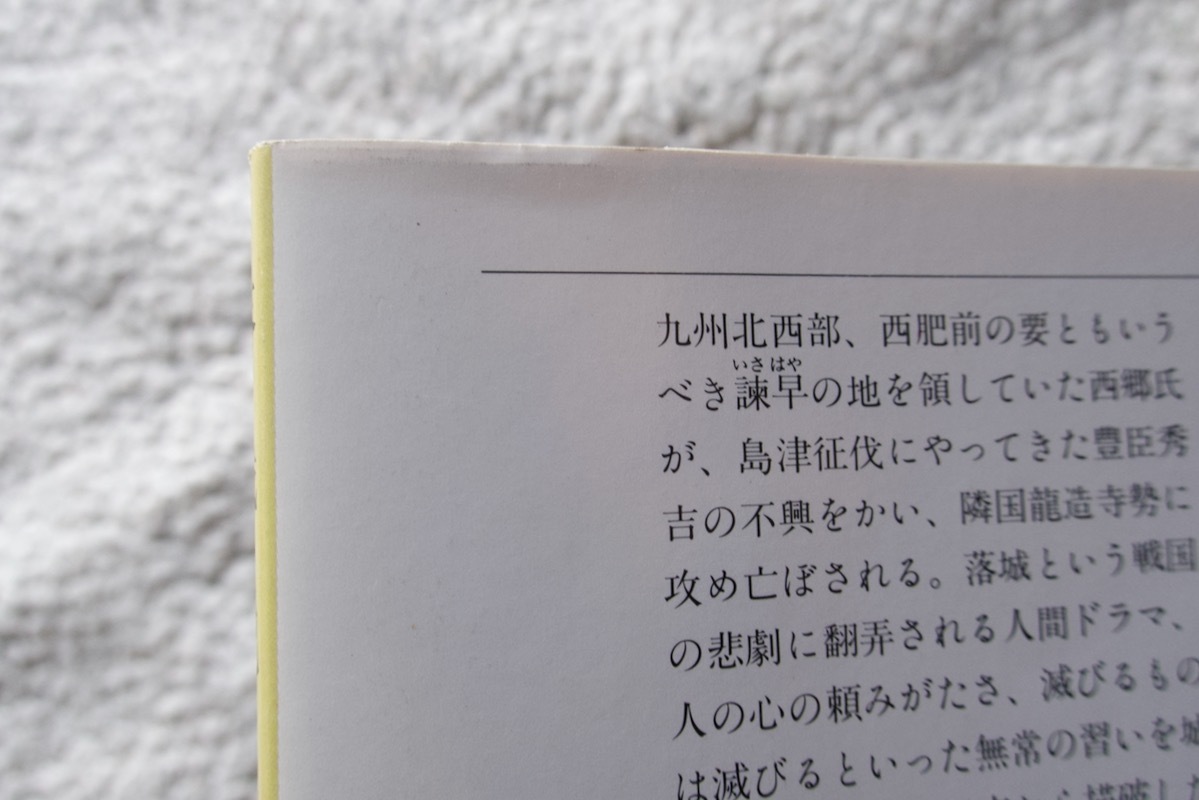 九州北西部、西肥前の要ともいう
いさはや
べき諫早の地を領していた西郷氏
が、島津征伐にやってきた豊臣秀
吉の不興をかい、隣国龍造寺勢に
攻め亡ぼされる。落城という戦国
の悲劇に翻弄される人間ドラマ、
人の心の頼みがたさ、滅びるもの
は滅びるといった無常の習いを城
から描破した